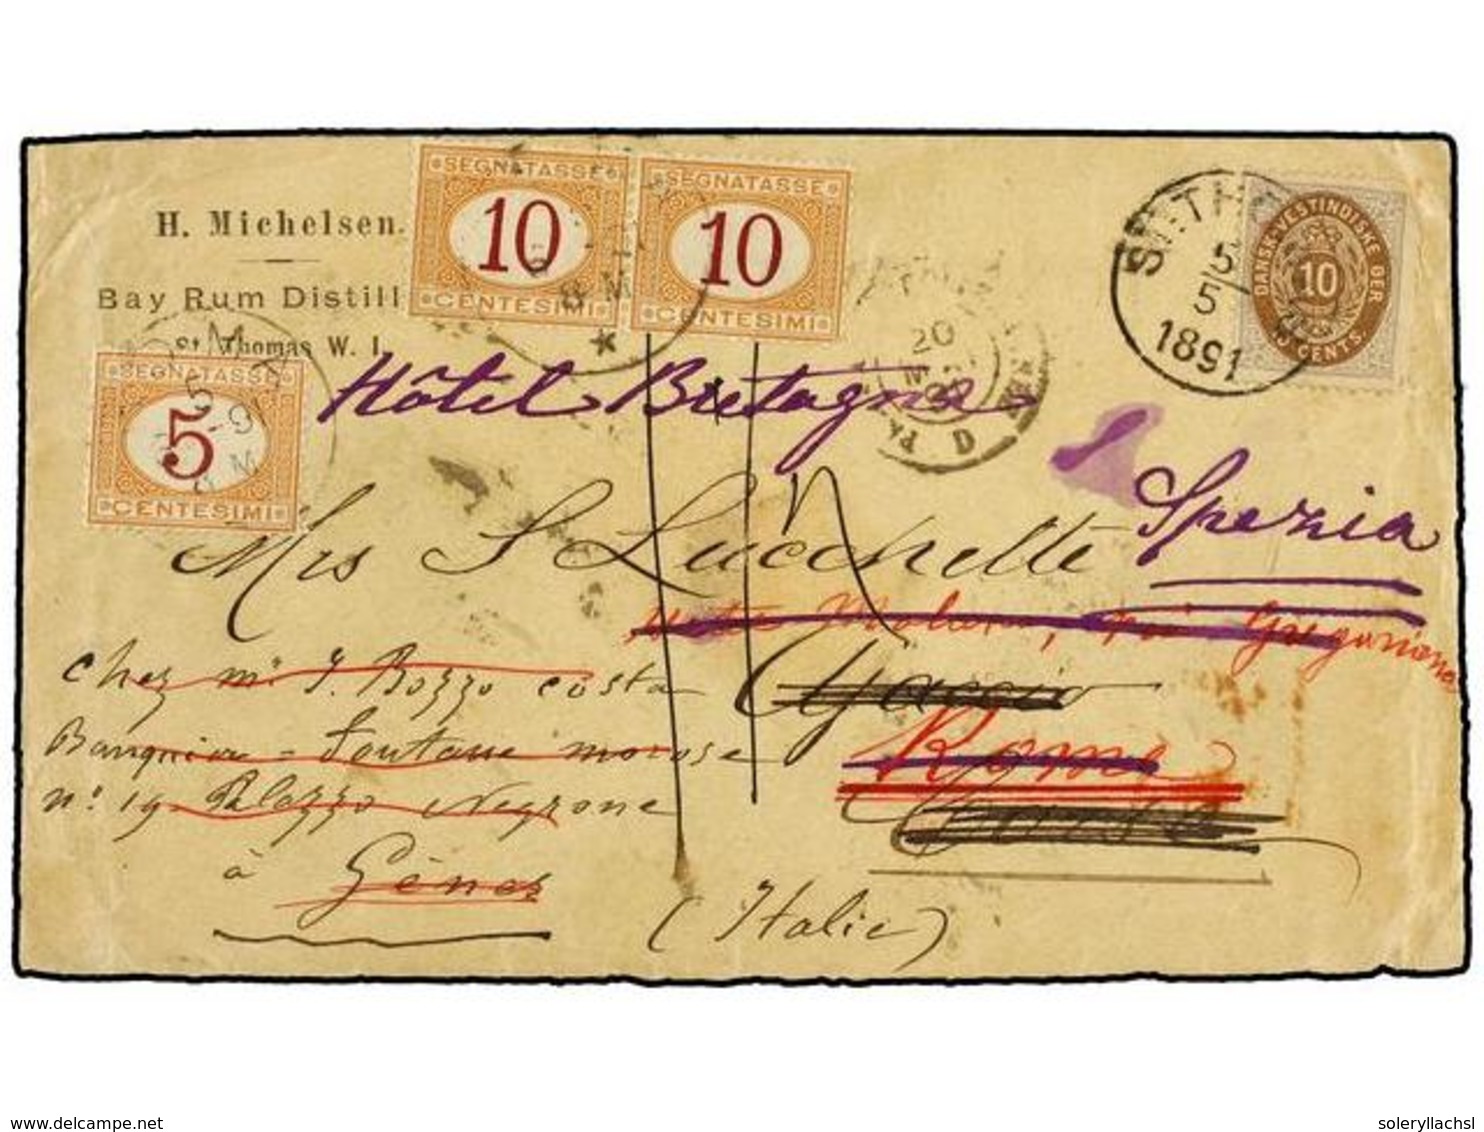 H. Michelsen.
Bay Rum Distill
St. Thomas W. I.
SEGNATASSE
10
CENTESIMI
SEGNATASSE
10
CENTESIMI
SEGNATASSE
5
CENTESIMI
20
D
ST. THO
5
5
1891
DANSK-VESTINDISKE ØER
10
10 CENTS.
Hôtel Bretagne
Spezia
Mrs S Lucchetti
chez mr. J. Bozzo costa
Banquier - Fontane morose
no. 19 Palazzo Negrone
à Gênes
(Italie)
Ajaccio
Rome
Corse
delcampe.net
soleryllachsl